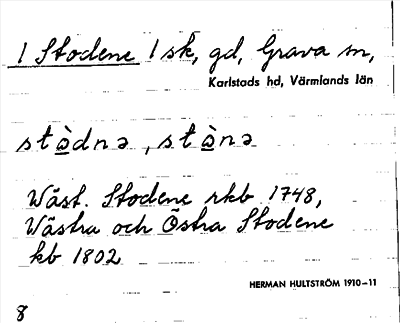 1 Stodene 1 sk, gd, Grava sn,
Karlstads hd, Värmlands län
stàdnə, stànə
Wäst. Stodene rkb 1748,
Västra och Östra Stodene
kb 1802
HERMAN HULTSTRÖM 1910–11
8